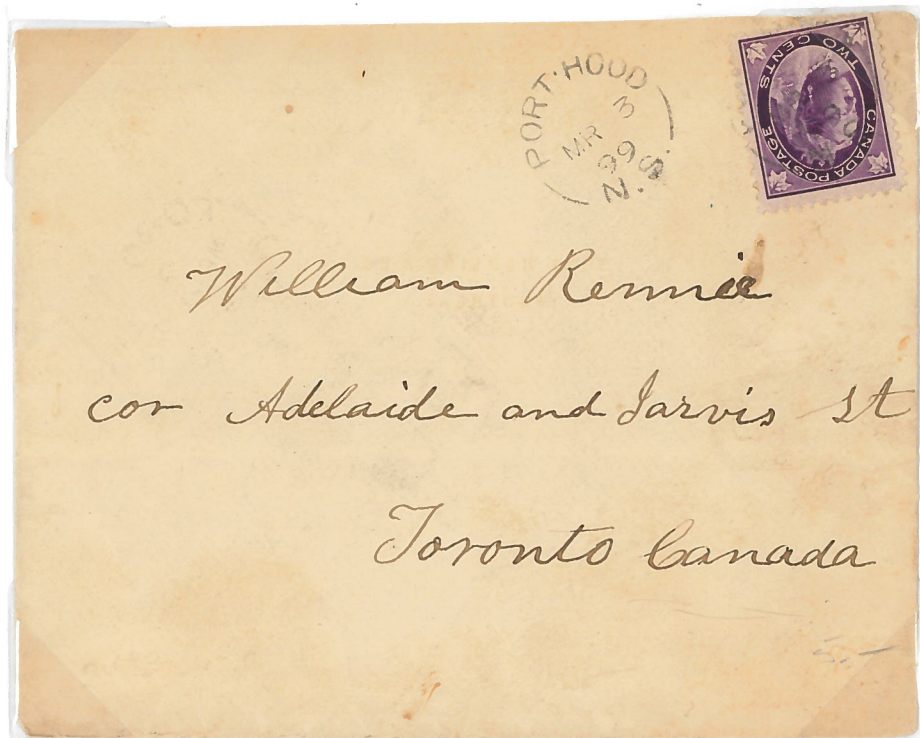 PORT·HOOD
MR 3
99
N.S.
TWO CENTS
CANADA POSTAGE
William Rennie
cor Adelaide and Jarvis St
Toronto Canada